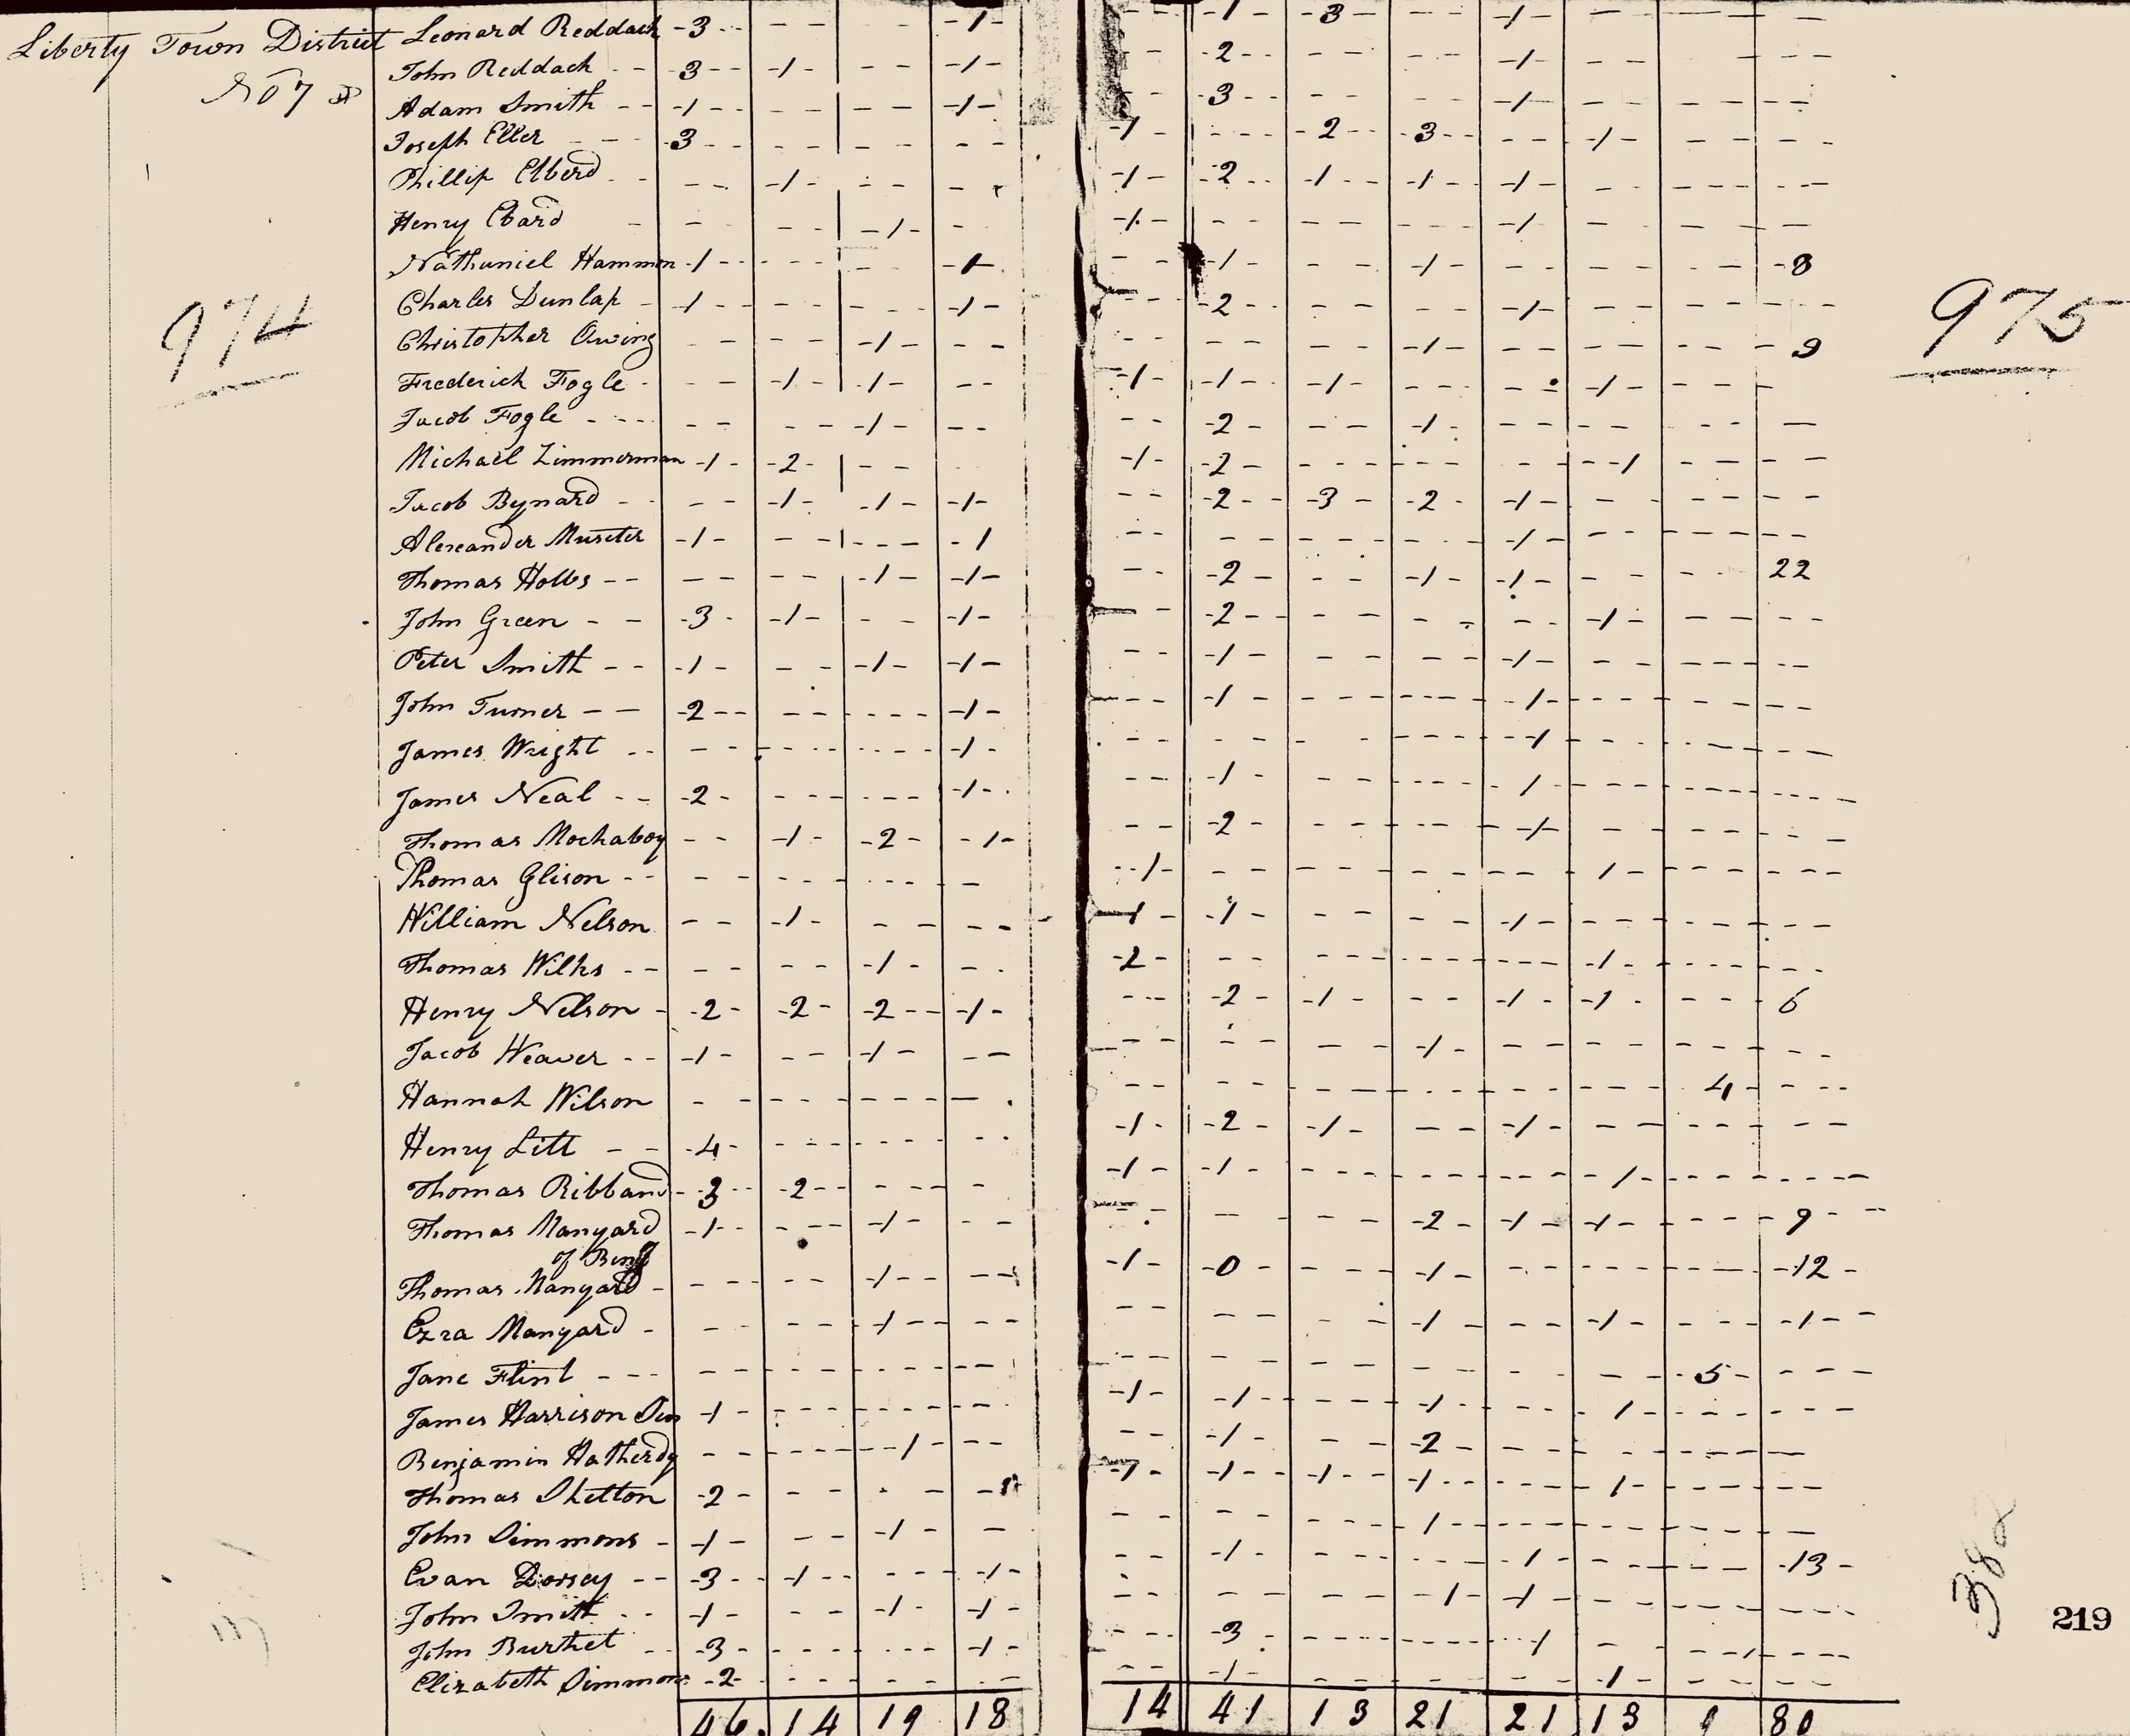 Liberty Town District
No 7
974
975
Leonard Reddach -3- -1- -1- -3- -1-
John Reddach 3 -1- -1- -2- -1-
Adam Smith -1- -1- -3- -1-
Joseph Eller 3 -1- -2- -3- -1-
Phillip Elberd -1- -1- -2- -1- -1- -1-
Henry Ebard -1- -1- -1-
Nathaniel Hammon -1- -1- -1- -1- -8
Charles Dunlap -1- -1- -2- -1-
Christopher Owing -1- -1- 9
Frederick Fogle -1- -1- -1- -1- -1- -1-
Jacob Fogle -1- -2- -1-
Michael Zimmerman -1- -2- -1- -2- -1
Jacob Bynard -1- -1- -1- -2- -3- -2- -1-
Alexander -1- -1 -1-
Thomas Hobbs -1- -1- -2- -1- -1- 22
John Green -3- -1- -1- -2- -1-
Peter Smith -1- -1- -1- -1- -1-
John Turner -2- -1- -1- -1-
James Wright -1- -1
James Neal -2- -1- -1- 1
Thomas Mochaboy -1- -2- -1- -2- -1-
Thomas Glison -1- 1-
William Nelson -1- -1- -1- -1-
Thomas Wilks -1- -2- -1-
Henry Nelson -2- -2- -2- -1- -2- -1- -1- -1- 6
Jacob Weaver -1- -1- -1-
Hannah Wilson 4
Henry Litt -4- -1- -2- -1- -1-
Thomas Ribband -3- -2- -1- -1- -1-
Thomas Manyard -1- -1- -2- -1- -1- 9
of Benj
Thomas Manyard -1- -1- -0- -1- -12-
Ezra Manyard -1- -1- -1- -1-
Jane Flint 5
James Harrison Sen -1- -1- -1- -1- 1-
Benjamin Hatherdy -1- -1- -2-
Thomas Shelton -2- -1 -1- -1- -1- -1- 1-
John Simmons -1- -1- 1-
Evan Dorsey -3- -1- -1- -1- -1- -13-
John Smith -1- -1- -1- -1- -1-
John Burket -3- -1- -3- -1
Elizabeth Simmons -2- -1- -1-
46 14 19 18 14 41 13 21 21 13 9 80
382
219